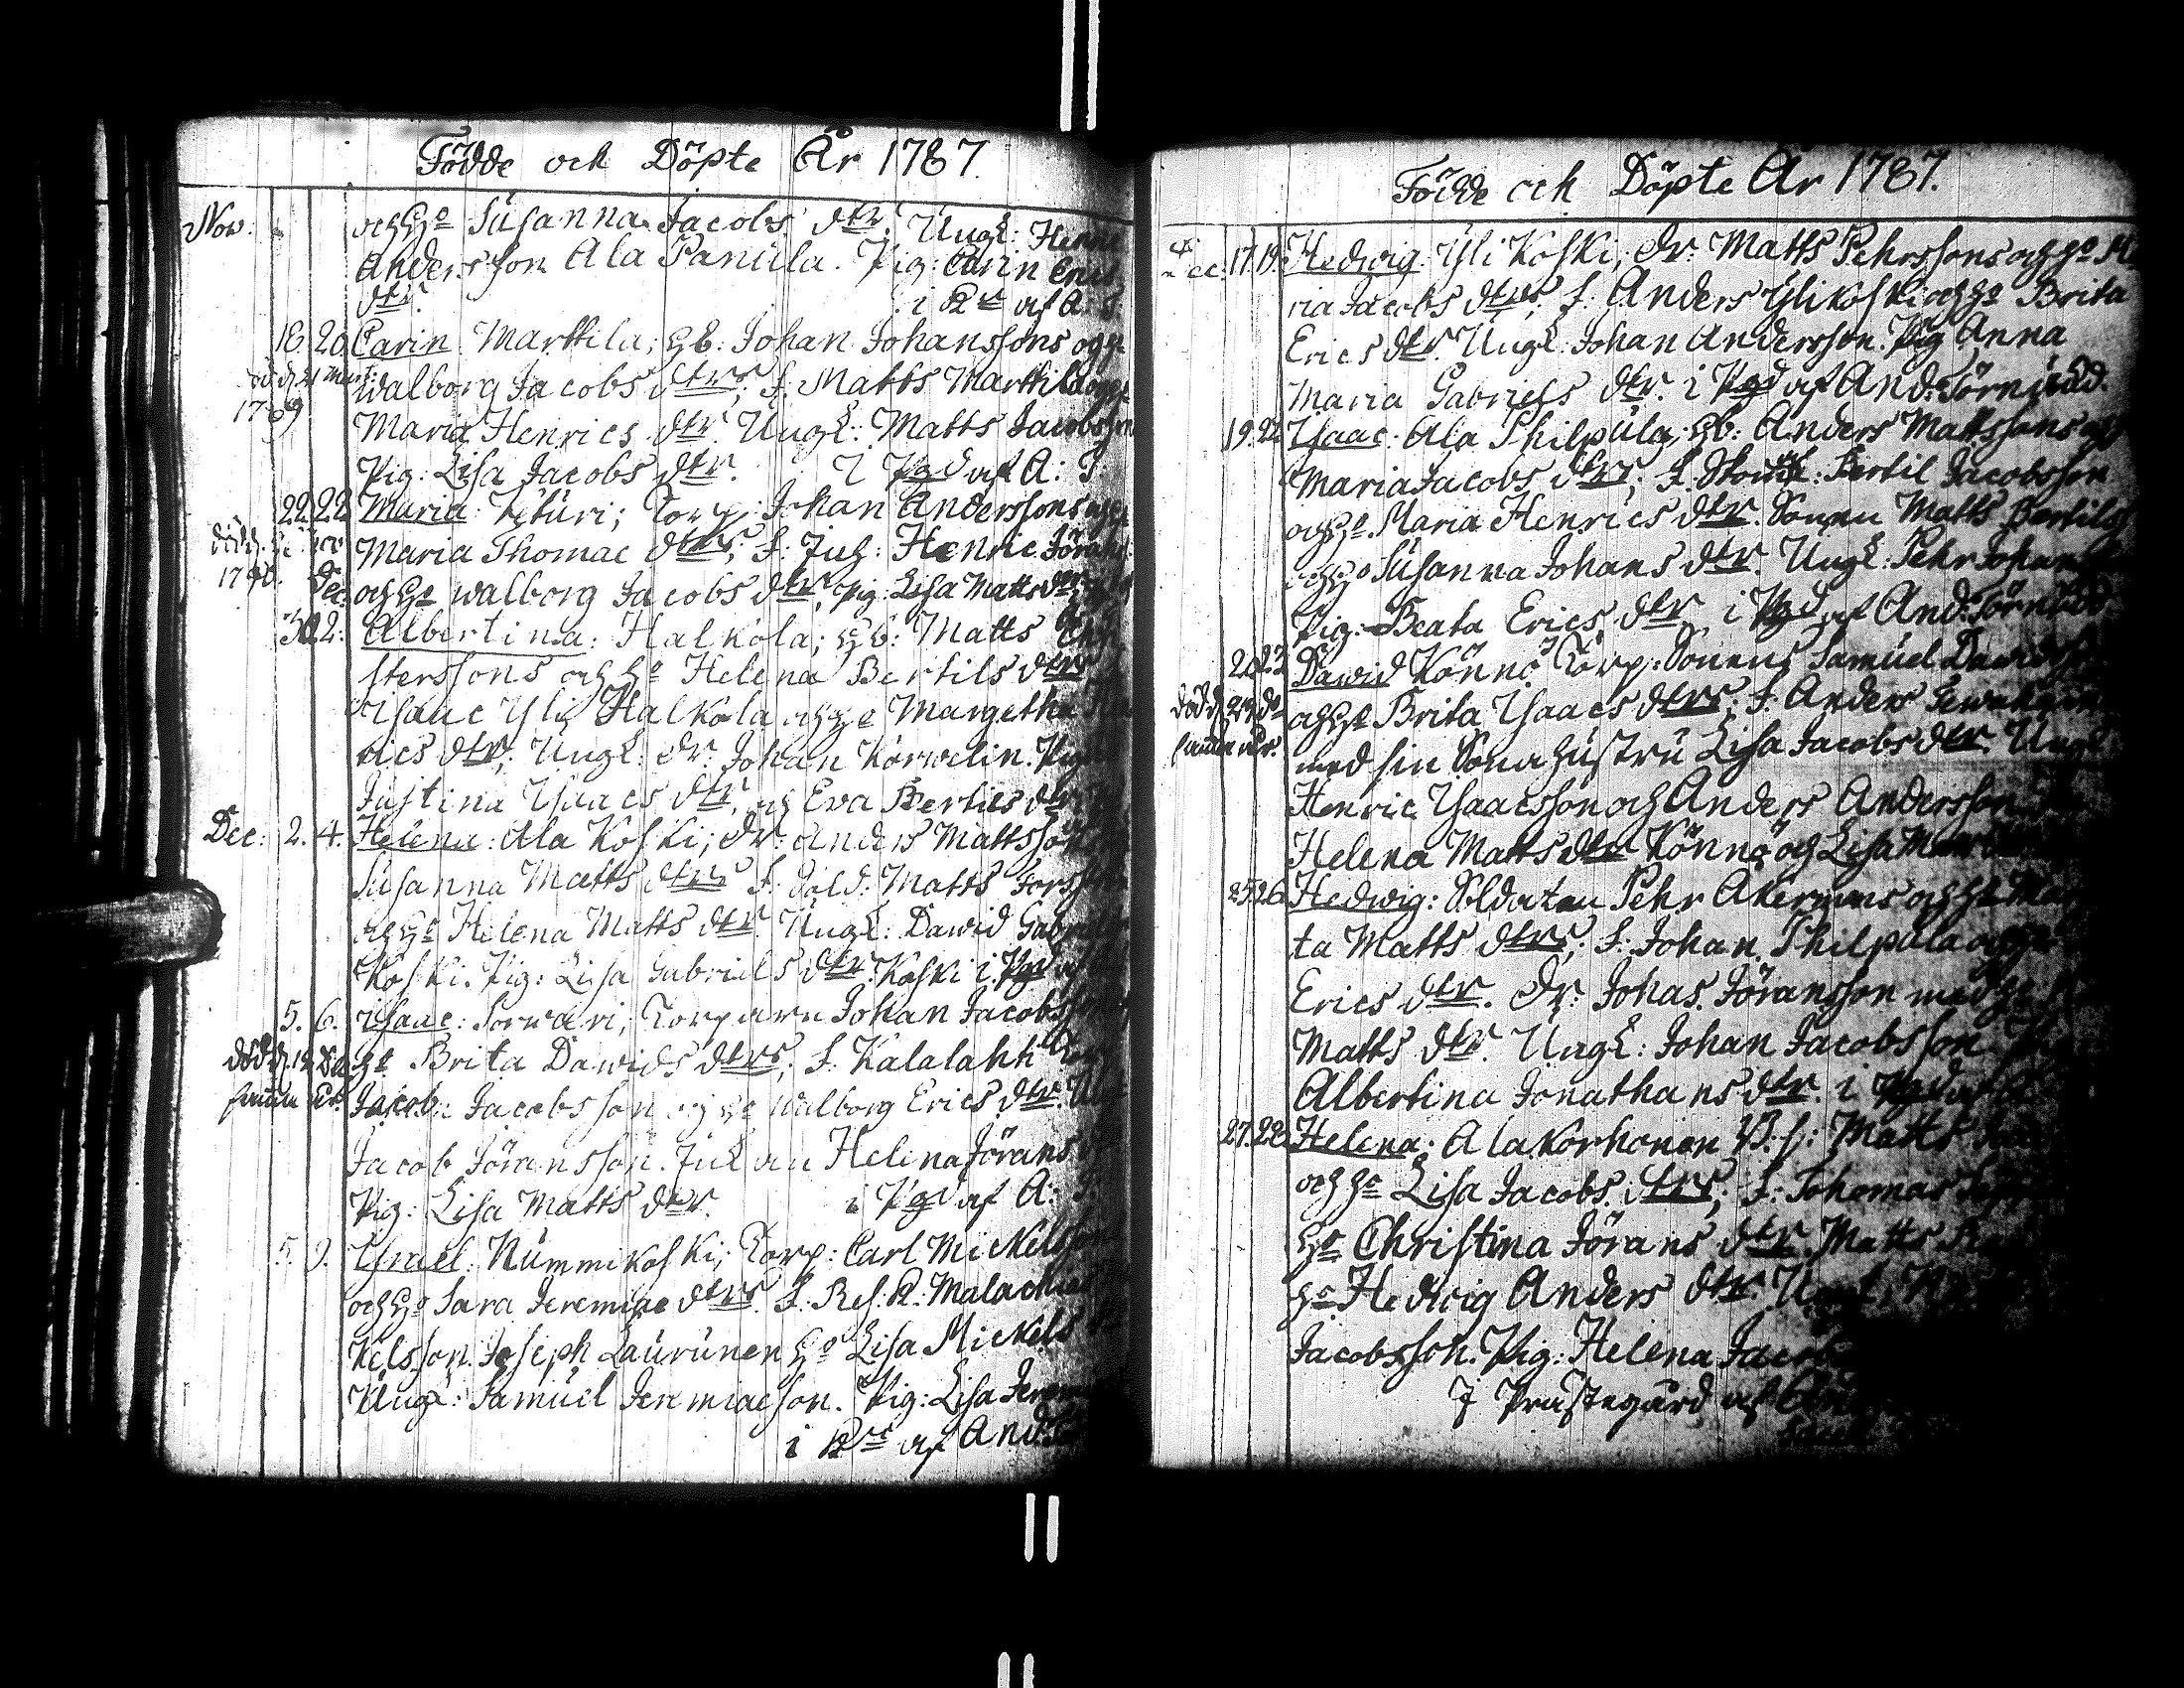 Födde och Döpte År 1787.
Nov: och Ho Susanna Jacobs dtr. Ungk: Henric
Andersson Ala Panula. Pig: Carin Erics
dtr. i K af A: T.
18. 20. Carin: Marttila; Hb: Johan Johanssons och Ho
död d. 21 Mart. 1789 Walborg Jacobs dtrs; F: Matts Marttila och Ho
Maria Henrics dtr. Ungk: Matts Jacobsson
Pig: Lisa Jacobs dtr. i Pgd af A: T.
22. 22. Maria: Torp: Johan Anderssons och Ho
Maria Thomae dtrs; F: Henric
död d. 1790. Dec: och Ho Walborg Jacobs dtr, Pig: Lisa Matts dtr
30. 2. Albertina: Halkola; Hb: Matts
sterssons och Ho Helena Bertils dtrs
Isaac Yli Halkola och Ho Margetha
rics dtr; Ungk: Dr: Johan Körwelin. Pig
Justina Isaacs dtr, och Eva Bertils dtr
Dec: 2. 4. Helena: Ala Koski; Dr: Anders Mattsson
Susanna Matts dtrs F: Sold: Matts Forss
och Ho Helena Matts dtr. Ungk: Dawid Gabriels
Koski. Pig: Lisa Gabriels dtr. Koski i Pgd af
5. 6. Isaac: Sorwari; Torparn Johan Jacobssons
död d. 12 samma år. Ho Brita Dawids dtrs; F: Kalalahti
Jacob Jacobsson och Ho Walborg Erics dtr.
Jacob Jöransson. Helena Jörans
Pig: Lisa Matts dtr. i Pgd af A: T.
5. 9. Israel: Nummikoski; Torp: Carl Mickelssons
och Ho Sara Jeremiae dtrs. F: Res. K: Malachias
kelsson. Joseph Laurunen Ho Lisa Mickels
Ungk: Samuel Jeremiaeson. Pig: Lisa Jerem
i K af And:
Födde och Döpte År 1787.
Dec: 17. 19. Hedwig: Yli Koski; Dr: Matts Pehrssons och Ho Ma
ria Jacobs dtrs; F: Anders Ylikoski och Ho Brita
Erics dtr. Ungk: Johan Andersson. Pig Anna
Maria Gabriels dtr. i Pgd af And: Törnudd.
19. 22. Isaac: Ala Philpula; Hb: Anders Mattssons och
Maria Jacobs dtrs; F: Bertil Jacobsson
och Ho. Maria Henrics dtr. Sonen Matts Bertils
och Ho Susanna Johans dtr. Ungk: Pehr Johans
Pig: Beata Erics dtr i Pgd af And: Törnudd
20. 23. Dawid Könnö Torp: Sonens Samuel Dawids
död d. 29 do samma år. och Ho Brita Isaacs dtrs; F: Anders
med sin Sonahustru Lisa Jacobs dtr. Ungk
Henric Isaacsson och Anders Andersson
Helena Matts dtr Könnö och Lisa
25. 26. Hedwig: Soldaten Pehr Åkermans och Ho Mar
ta Matts dtrs; F: Johan Philpula och Ho
Erics dtr. Dr: Johas. Jöransson med Ho
Matts dtr. Ungk: Johan Jacobsson
Albertina Jonathans dtr. i Pgd af
27. 28. Helena: Ala Korhonen B. S: Matts
och Ho Lisa Jacobs dtrs; F: Thomas
Ho Christina Jörans dtr. Matts
Ho Hedwig Anders dtr. Ungk.
Jacobsson. Pig: Helena Jacobs
I Prästegård af